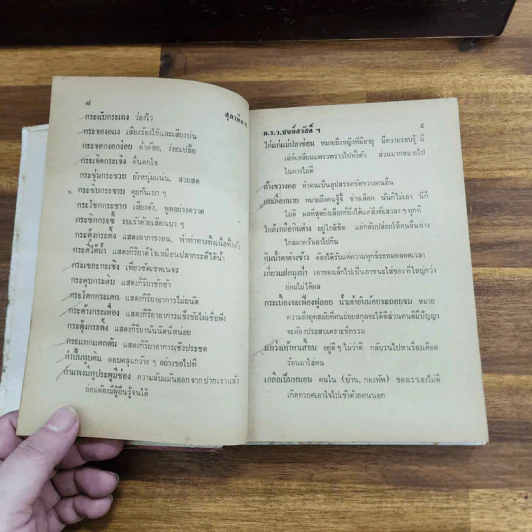 ๘
สุภาษิต ฯ
กระฉับกระเฉง ว่องไว
กระจองอแง เสียงร้องไห้และเสียงบ่น
กระจอกงอกง่อย ต่ำต้อย, ง่อยเปลี้ย
กระเจิดกระเจิง ตื่นตกใจ
กระชุ่มกระชวย ยังหนุ่มแน่น, สวยสด
กระซิบกระซาบ คุยกันเบา ๆ
กระโชกกระชาก เสียงดัง, พูดอย่างตวาด
กระซิกกระซี้ รบเร้าด้วยเสียงเบา ๆ
กระดุ้งกระดิ้ง แสดงอาการงอน,
แสดงกิริยาดีใจเหมือนปลากระดี่ได้น้ำ
กระเซอะกระเซิง เที่ยวซัดเซพเนจร
กระดุบกระดบ แสดงกิริยาชักช้า
กระโดกกระเดก แสดงกิริยาอาการไม่สนิท
กระด้างกระเดื่อง แสดงกิริยาอาการแข็งข้อไม่เชื่อฟัง
กระตุ้งกระติ้ง แสดงกิริยานิ่มนิดนิ่มหน่อย
กระมิดกระเมี้ยน แสดงกิริยาอาการเชิงประชด
กำปั้นทุบดิน ตอบคลุมกว้าง ๆ อย่างขอไปที
กำแพงมีหูประตูมีช่อง ความลับแม้นออกจากปากเราแล้ว
ย่อมต้องมีผู้อื่นรู้จนได้
ม.ร.ว.ชนม์สวัสดิ์ ฯ
๙
ไก่แก่แม่ปลาช่อน หมายถึงหญิงที่มีอายุ มีความรอบรู้ มี
เล่ห์เหลี่ยมแพรวพราวไปทั้งตัว ส่วนมากหมายไป
ในทางไม่ดี
ก้างขวางคอ ทำตนเป็นอุปสรรคขัดขวางคนอื่น
หมายถึงคนรู้ขี้ ช่างเลือก นั่นก็ไม่เอา นี่ก็
ไม่ดี ผลที่สุดยิ่งเลือกก็ยิ่งได้แต่สิ่งที่เลวลง ๆ ทุกที
ใกล้เกลือกินด่าง อยู่ใกล้ชิด แต่กลับปล่อยให้คนอื่นช่าง
ไกลมาคว้าเอาไปกิน
กินน้ำตาต่างข้าว ต้องได้รับแต่ความทุกข์ระทมตลอดเวลา
เกี่ยวแฝกมุงป่า เอาของเล็กไปเป็นภาชนะใส่ของที่ใหญ่กว่า
ย่อมไม่ได้ผล
กระเบื้องจะเฟื่องฟูลอย น้ำเต้าอันน้อยจะถอยจม หมาย
ความถึงยุคสมัยที่คนถ่อยสกุลจะได้ดีส่วนคนดีมีปัญญา
จะต้องประสบเคราะห์กรรม
แกว่งเท้าหาเสี้ยน อยู่ดี ๆ ไม่ว่าดี กลับวนไปหาเรื่องเดือด
ร้อนมาใส่ตน
เกลือเป็นหนอน คนใน (บ้าน, กองทัพ) ของเราเองไม่ดี
เกิดทรยศเอาใจไปเข้าด้วยคนนอก